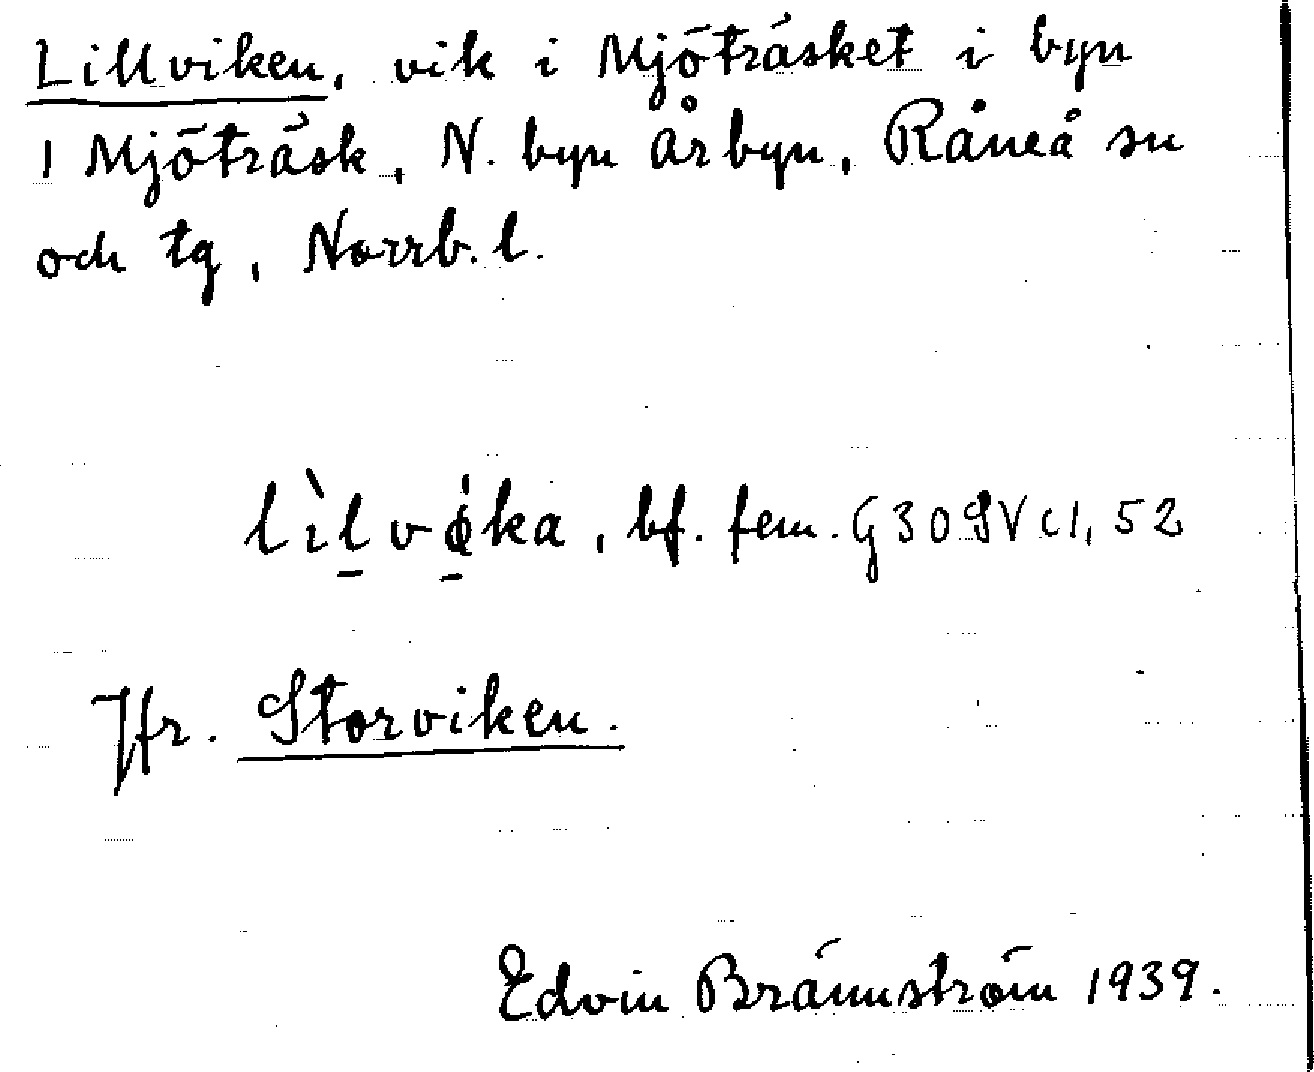 Lillviken, vik i Mjöträsket i byn
1 Mjöträsk, N. byn Årbyn, Råneå sn
och tg, Norrb. l.
lìlvika, bf. fem. G309 V c1, 52
Jfr. Storviken.
Edvin Brännström 1939.